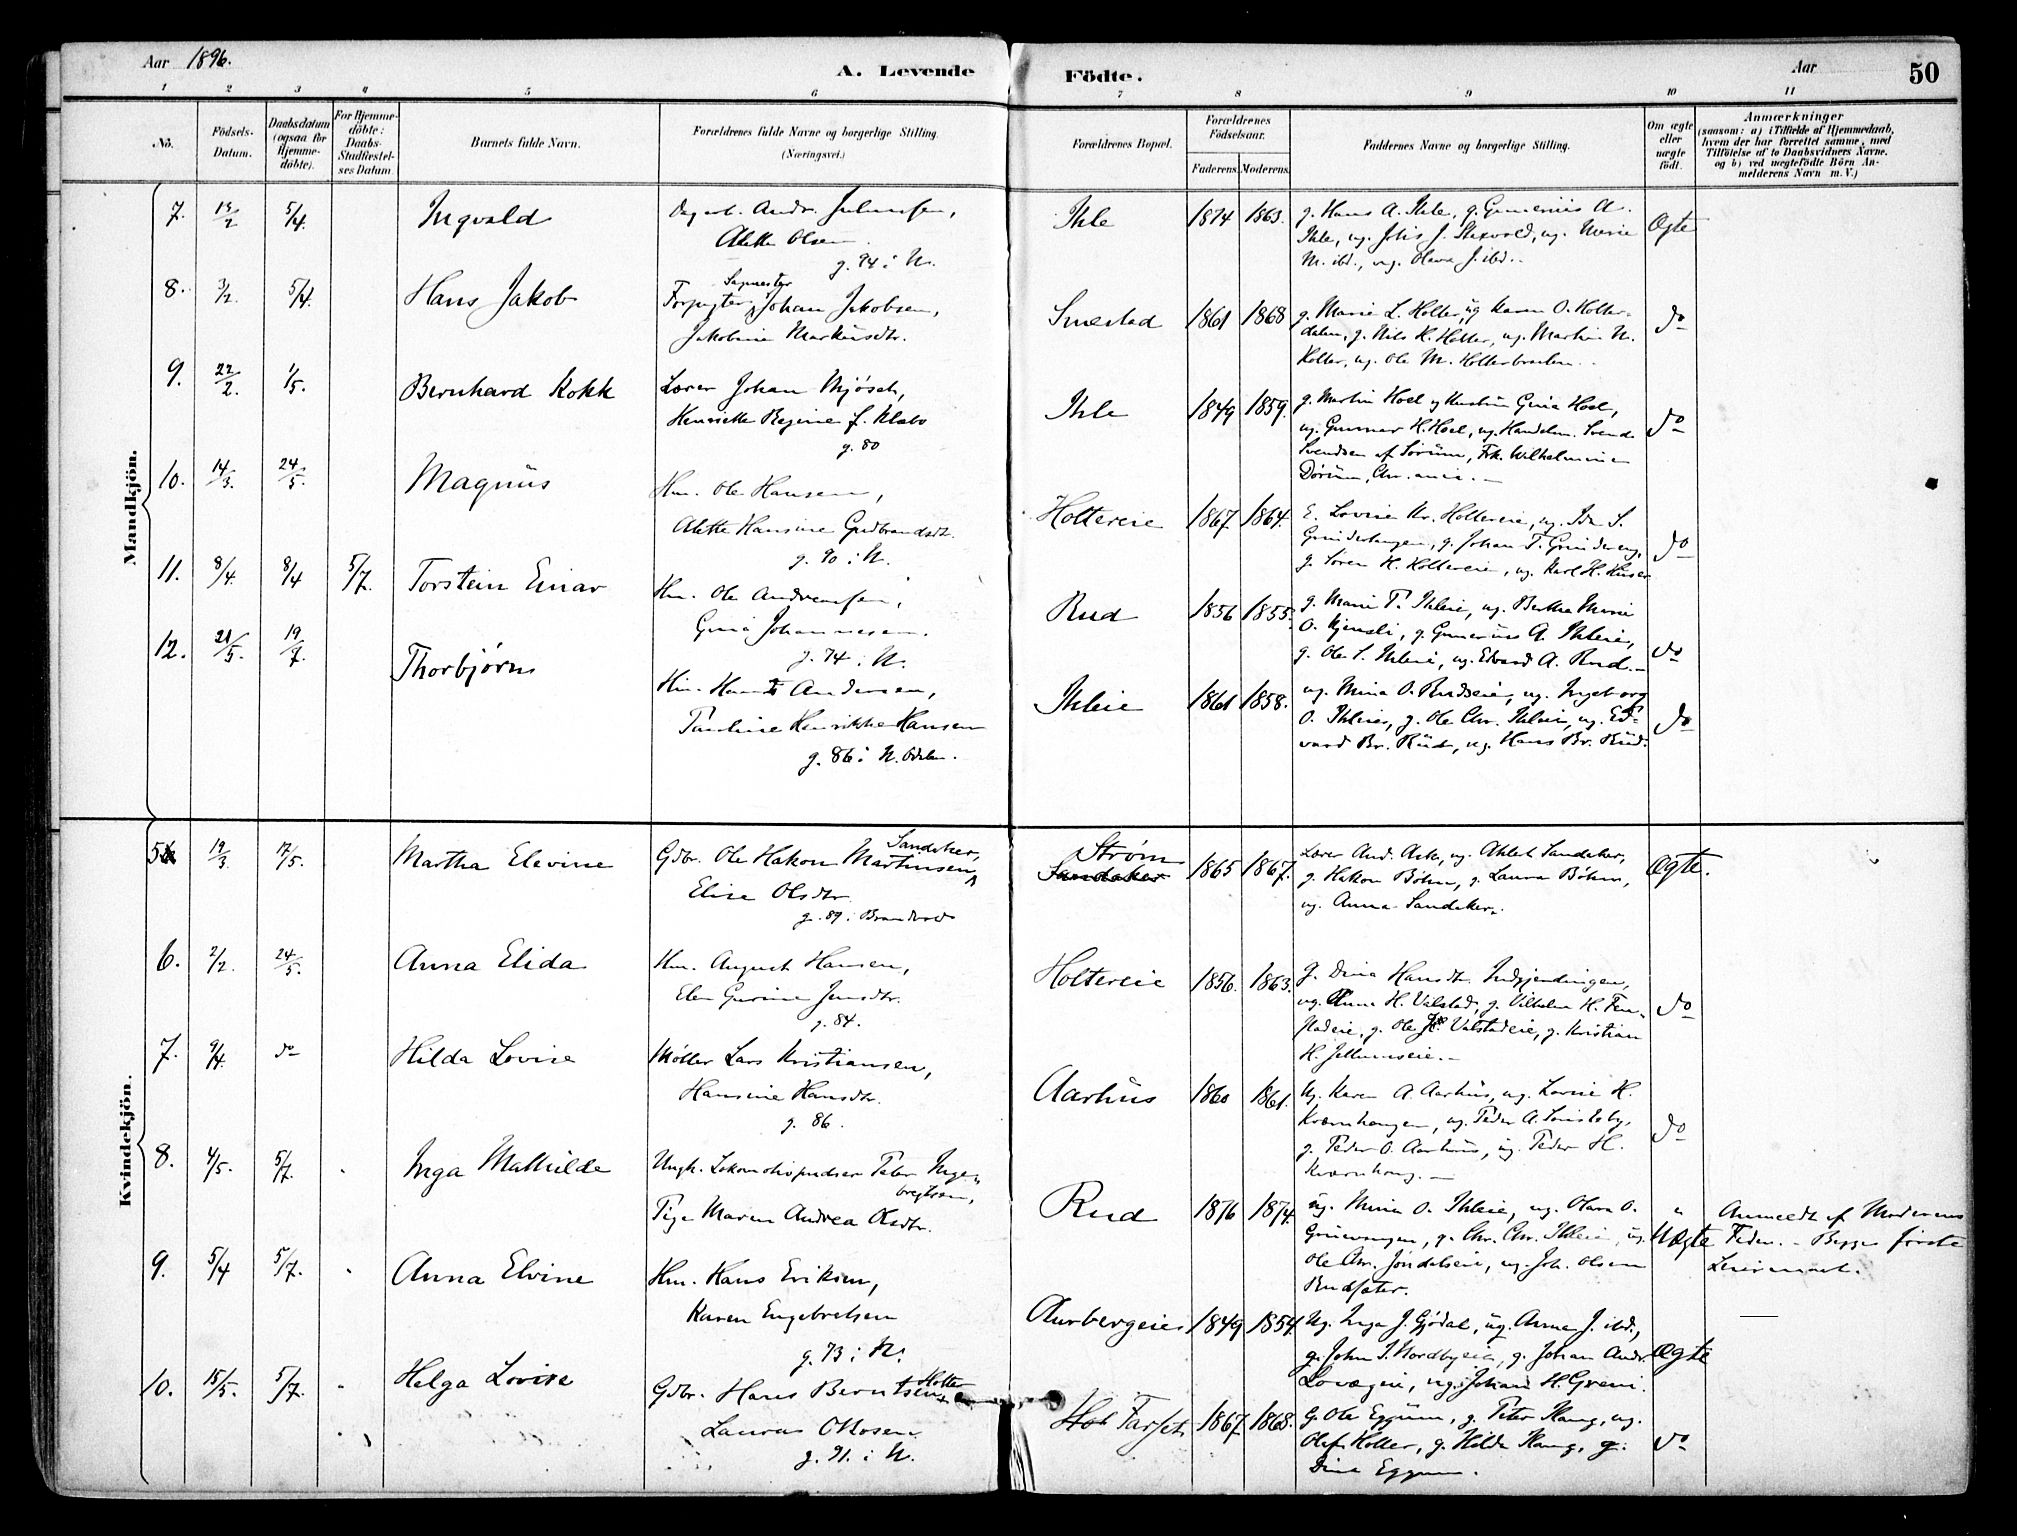 Aar 1896.
A. Levende
Födte.
Aar
50
1 2 3 4 5 6 7 8 9 10 11
No.
Födsels-Datum.
Daabsdatum (ogsaa för Hjemme-döbte).
For Hjemme-döbte: Daabs-Stadfæstel-ses Datum
Barnets fulde Navn.
Forældrenes fulde Navne og borgerlige Stilling.
(Næringsvei.)
Forældrenes Bopæl.
Forældrenes Födselsaar.
Faderens. Moderens.
Faddernes Navne og borgerlige Stilling.
Om ægte eller uægte födt.
Anmærkninger
(saasom: a) i Tilfælde af Hjemmedaab, hvem der har forrettet samme, med Tilföielse af to Daabsvidners Navne, og b) ved uægtefödte Börn An-melderens Navn m. V.)
Mandkjön.
7. 5/4. Ingvald
Alette Olsen
g. 94 i N.
Ihle 1874 1863.
g. Hans A. Ihle, g. Gunerius A.
Ihle, ug. M. ibd., ug. Olava J. ibd.
Ægte
8. 3/2. 5/4. Hans Jakob
Forpagter Johan Jakobsen,
Jakobine Markusdtr.
Smestad 1861 1868
g. Marie L. Holter, ug Karen O. Holter-
dalen, g. Nils H. Holter, ug. Martin N.
Holter, ug. Ole M. Holterbraaten.
do
9. 22/2. 1/5. Bernhard Kokk
Lærer Johan Mjøseth,
Henriette Regine f. Klæbo
g. 80
Ihle 1849 1859.
g. Martin Hoel og Hustru Gina Hoel,
ug. Gunnar H. Hoel, ug. Handelsm. Svend
Svendsen af Sørum, Frk. Wilhelmine
do
10. 14/3. 24/5. Magnus
Hm. Ole Hansen,
Alette Hansine Gudbrandsdtr.
g. 90 i N.
Holtereie 1867 1864.
E. Lovise Kr. Holtereie, ug. Ida S.
g. Søren H. Holtereie, ug. Karl H. Huser
do
11. 8/4. 8/4 5/7. Torstein Einar
Hm. Ole Andreassen,
Gina Johannesen.
g. 74 i N.
Rud 1856 1855.
g. Marie P. Ihleie, ug. Berthe Marie
g. Gunerius A. Ihleie,
g. Ole S. Ihleie, ug. Edvard A. Rud.
do
12. 21/5. 19/7. Thorbjørn
Andersen,
Pauline Henrikke Hansen
g. 86 i N. Odalen.
Ihleie 1861 1858.
ug. Mina O. Rudseie, ug. Ingeborg
O. Ihleie, g. Ole Chr. Ihleie, ug. Ed-
vard Br. Rud, ug. Hans Br. Rud.
do
Kvindekjön.
5 19/3. 17/5. Martha Elevine
Gdbr. Ole Hakon Martinsen Sandaker,
Elise Olsdtr.
g. 89 i Brandvold
Strøm
Sandaker 1865 1867.
Lærer And. Ask, ug. Sandaker,
g. Hakon Bøhm, g. Laura Bøhm,
ug. Anna Sandaker.
Ægte.
6. 2/2. 24/5. Anna Elida
Hm. August Hansen,
Elen Gurine Jensdtr.
g. 84.
Holtereie 1856. 1863.
g. Dina Hansdtr.
ug. Anna H. Valstad, g. Vilhelm H.
g. Ole Valstadeie, g. Kristian
H. Jellumseie.
do
7. 9/4. do Hilda Lovise
Møller Lars Kristiansen,
Hansine Hansdtr.
g. 86.
Aarhus 1860 1861.
ug. Karen A. Aarhus, ug. Lovise H.
Kværnhaugen, ug. Peder A.
g. Peder O. Aarhus, ug. Peder H.
Kværnhaug.
do
8. 4/5. 5/7. Inga Mathilde
Ungk. Lokomotivpudser Peter Inge-
bregtsen,
Pige Maren Andrea Olsdtr.
Rud 1876 1874.
ug. Mina O. Ihleie, ug. Olava O.
g. Chr. Chr. Ihleie, ug.
Ole Chr. Jøndalseie, ug. Joh. Olsen
Rudsæter.
Uægte
Anmeldt af Moderens
Fader. - Begges første
Leiermaal.
9. 5/4 5/7. Anna Elvine
Hm. Hans Eriksen,
Karen Engebretsen
g. 73 i N.
Aurbergeie 1849 1854.
ug. Inga J. Gjødal, ug. Anna J. ibd.,
g. John S. Nordbyeie, g. Johan Andr.
ug. Johan H. Greni.
Ægte
10. 15/5. 5/7. Helga Lovise
Gdbr. Hans Berntsen Holter
Laura Ottosen
g. 91. i N.
Farset 1867 1868.
g. Ole Eggum, g. Peter Haug, ug.
Olaf Holter, g. Hilda Haug, g.
Dina Eggum.
do